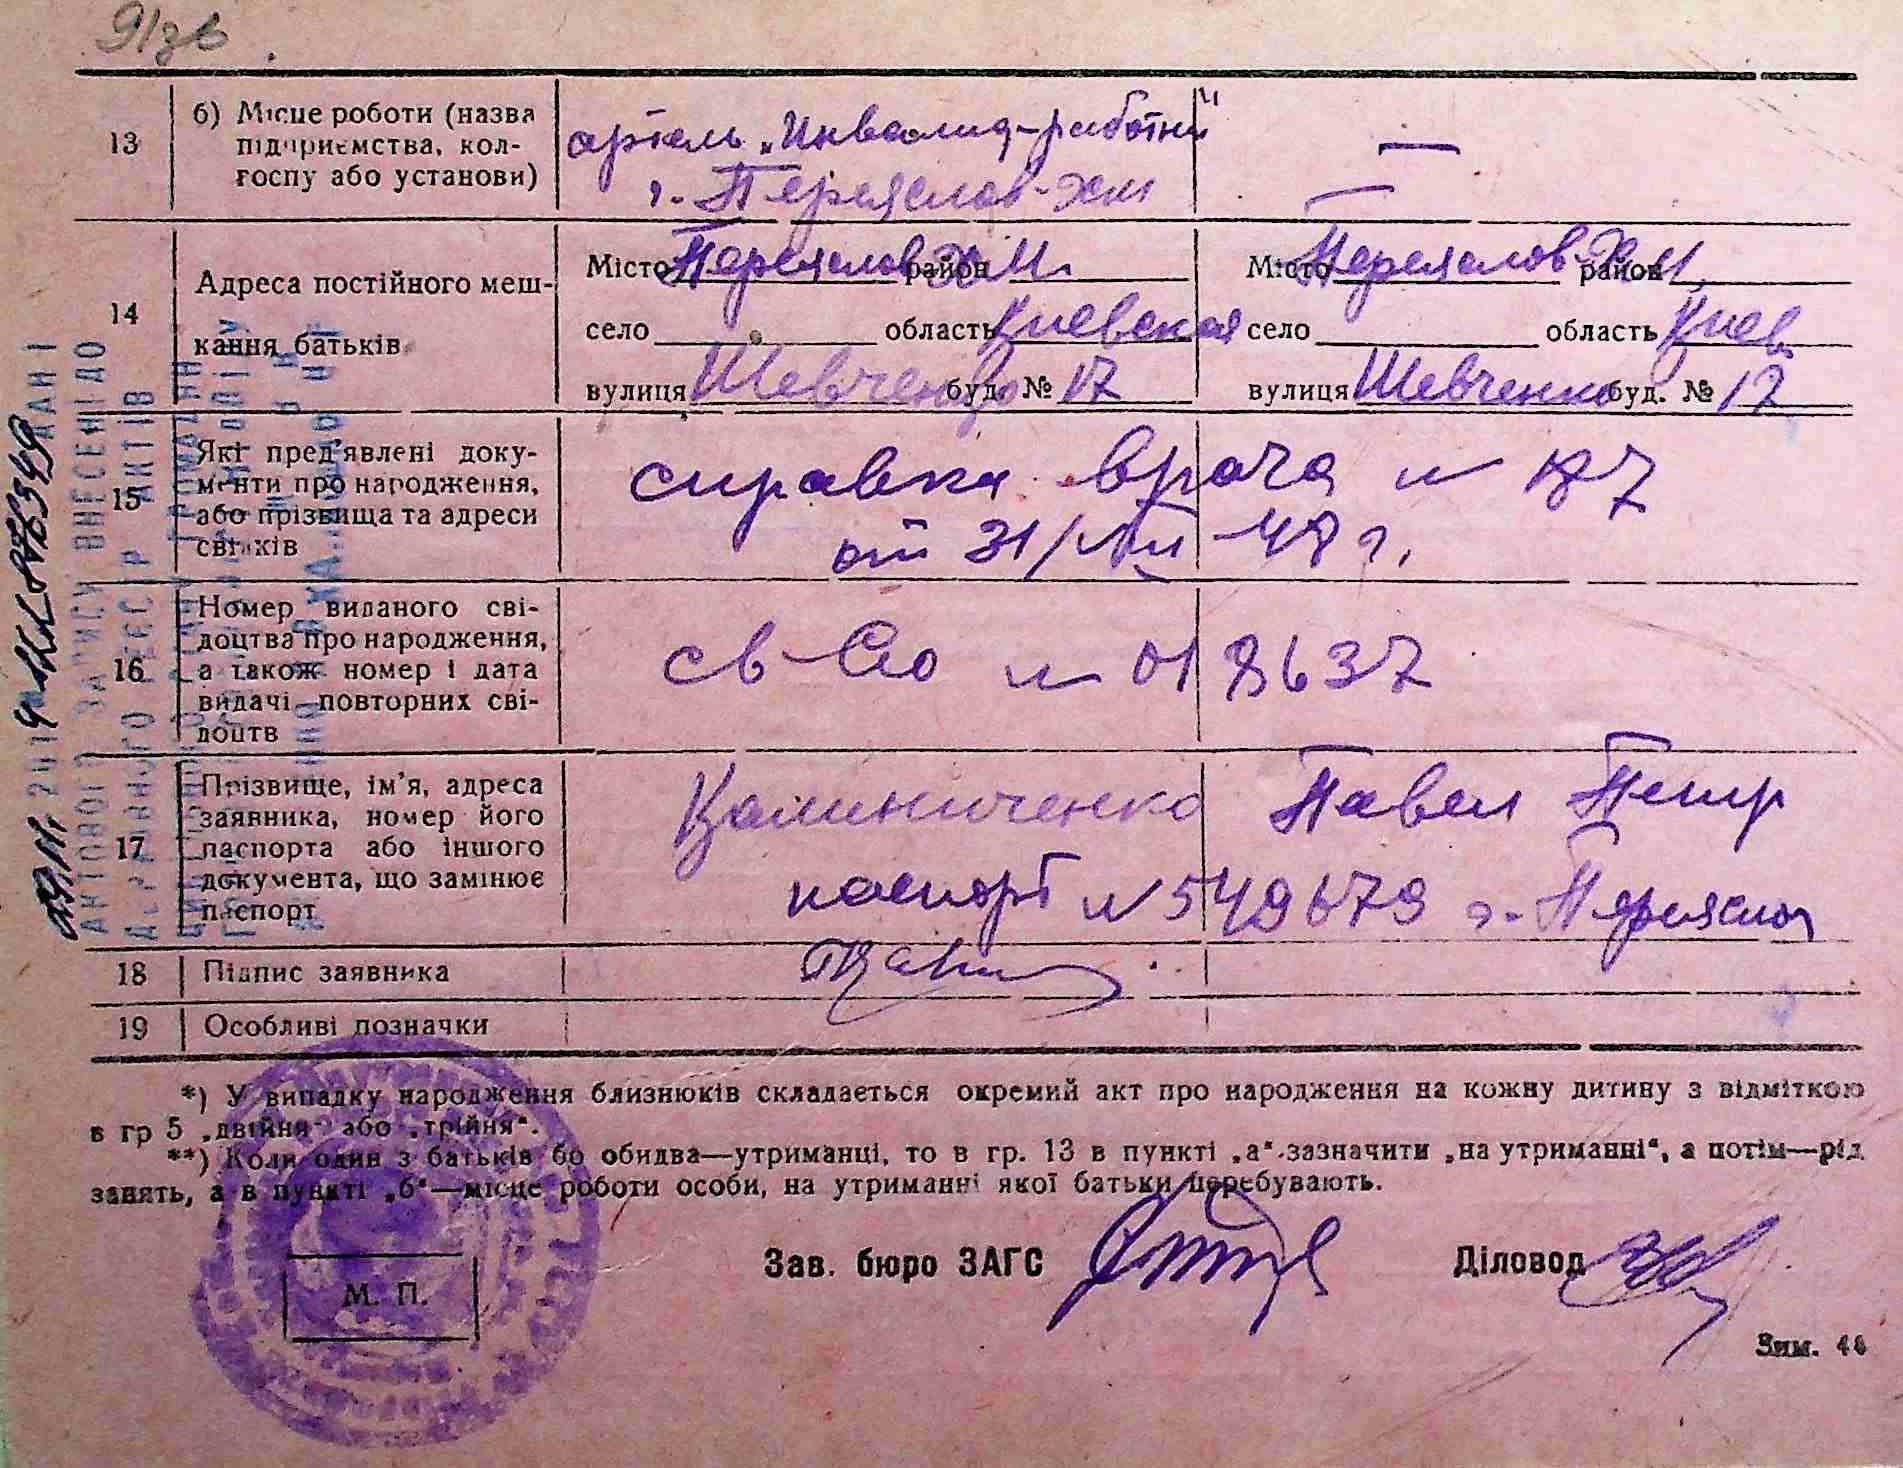 91зв
13
б) Місце роботи (назва
підприємства, кол-
госпу або установи)
артель „Инвалид-работник"
г. Переяслов-Хм
—
14
Адреса постійного меш-
кання батьків
Місто Переяслов Хм. район
село область Киевская
вулиця Шевченко буд. № 17
Місто Переяслов-Хм. район
село область Киев
вулиця Шевченко буд. № 17
15
Які пред'явлені доку-
менти про народження,
або прізвища та адреси
свідків
справка врача № 87
от 31/VII-48 г.
16
Номер виданого сві-
доцтва про народження,
а також номер і дата
видачі повторних сві-
доцтв
св-во № 018637
17
Прізвище, ім'я, адреса
заявника, номер його
паспорта або іншого
документа, що замінює
паспорт
Калиниченко Павел Петр
паспорт № 549679 г. Переяслов
18
Підпис заявника
19
Особливі позначки
*) У випадку народження близнюків складається окремий акт про народження на кожну дитину з відміткою
в гр 5 „двійня" або „трійня".
**) Коли один з батьків бо обидва—утриманці, то в гр. 13 в пункті „а" зазначити „на утриманні", а потім—рід
занять, а в пункті „б"—місце роботи особи, на утриманні якої батьки перебувають.
Зав. бюро ЗАГС
Діловод
М. П.
Зим. 48
ДАНІ
АКТОВОГО ЗАПИСУ ВНЕСЕНІ ДО
ДЕРЖАВНОГО РЕЄСТР АКТІВ